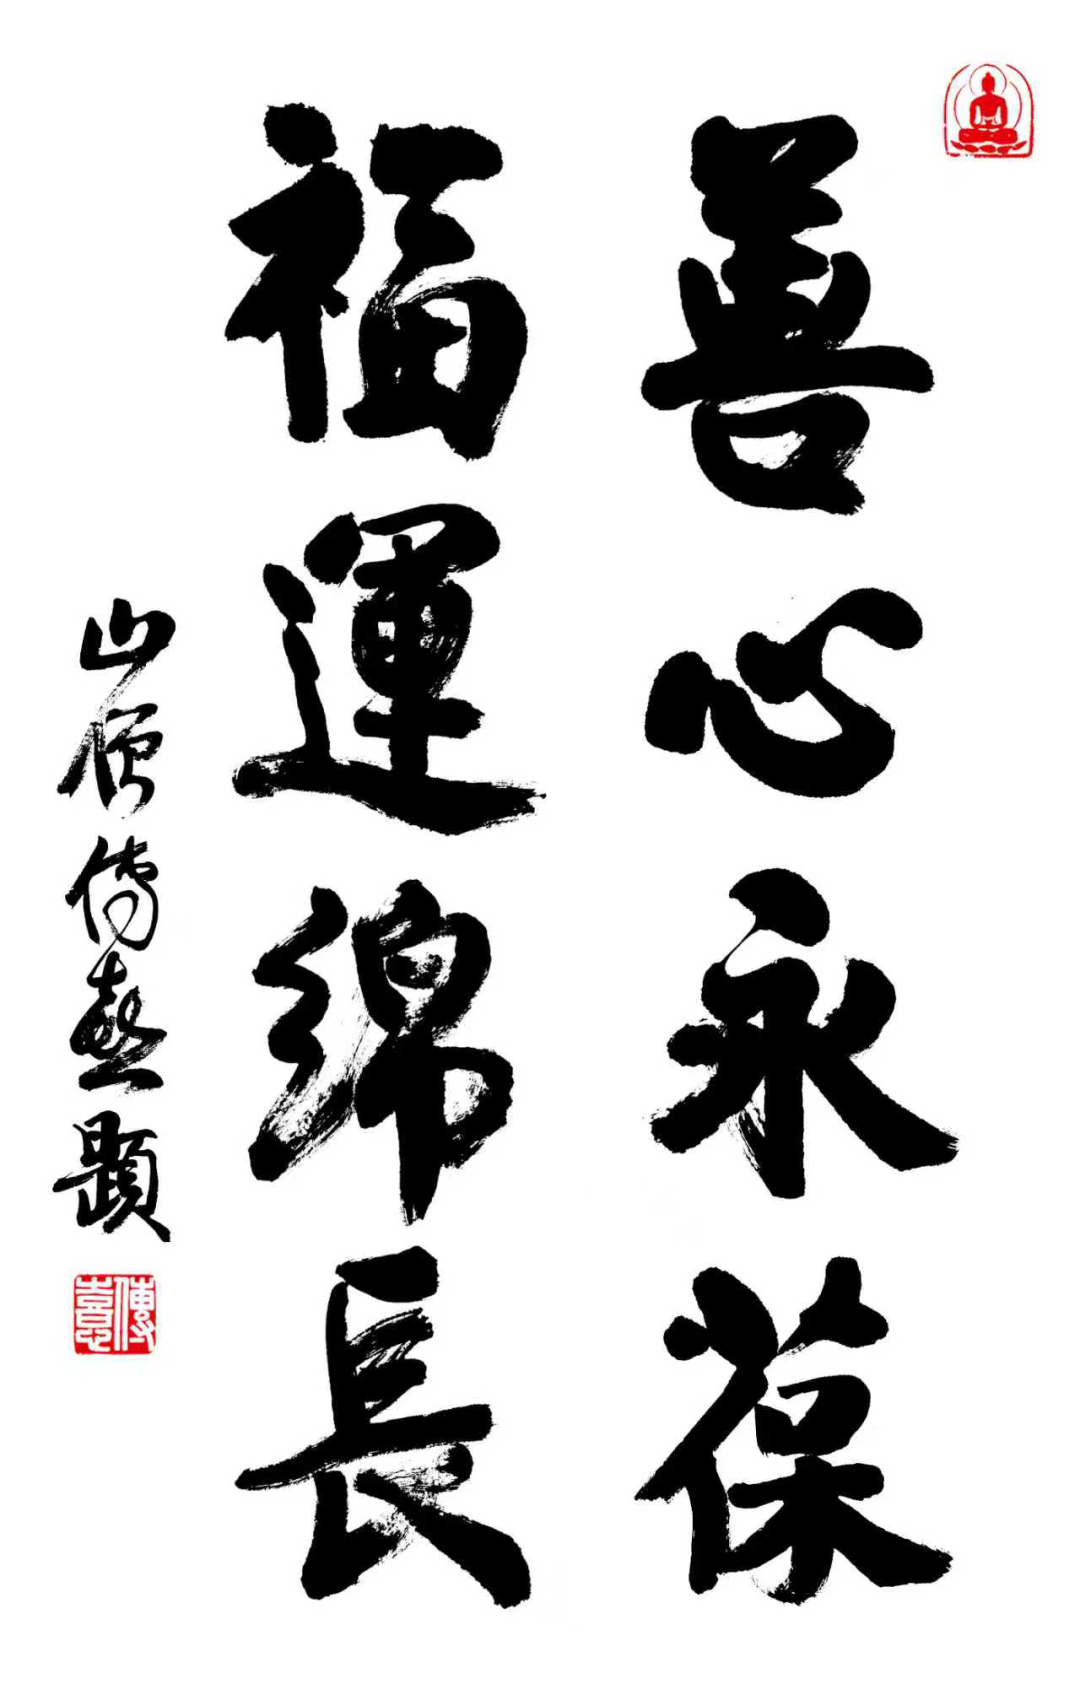 善心永葆
福運綿長
山僧傳喜題
傳喜